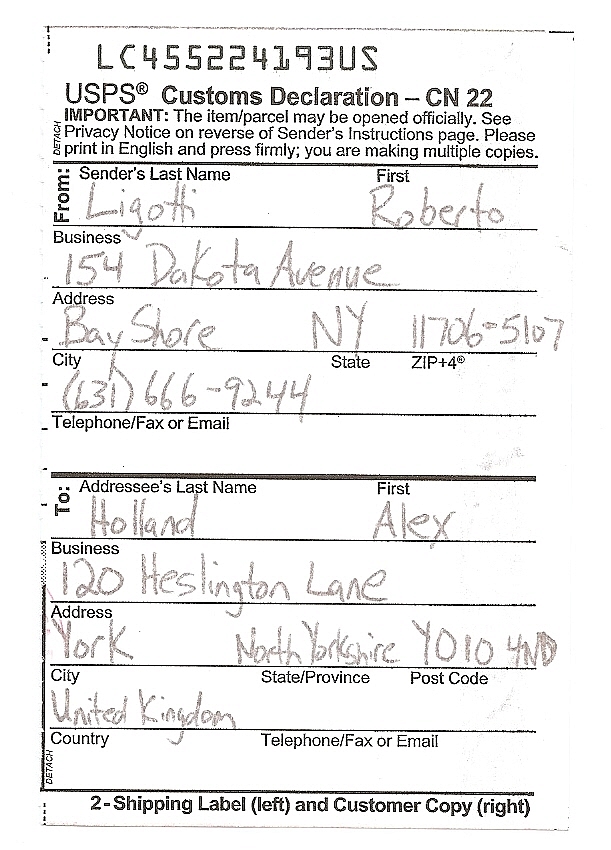 LC455224193US
USPS® Customs Declaration – CN 22
IMPORTANT: The item/parcel may be opened officially. See
Privacy Notice on reverse of Sender's Instructions page. Please
print in English and press firmly; you are making multiple copies.
DETACH
From: Sender's Last Name First
Ligotti Roberto
Business
154 Dakota Avenue
Address
Bay Shore NY 11706-5107
City State ZIP+4®
(631) 666-9244
Telephone/Fax or Email
To: Addressee's Last Name First
Holland Alex
Business
120 Heslington Lane
Address
York North Yorkshire YO10 4ND
City State/Province Post Code
United Kingdom
Country Telephone/Fax or Email
DETACH
2-Shipping Label (left) and Customer Copy (right)